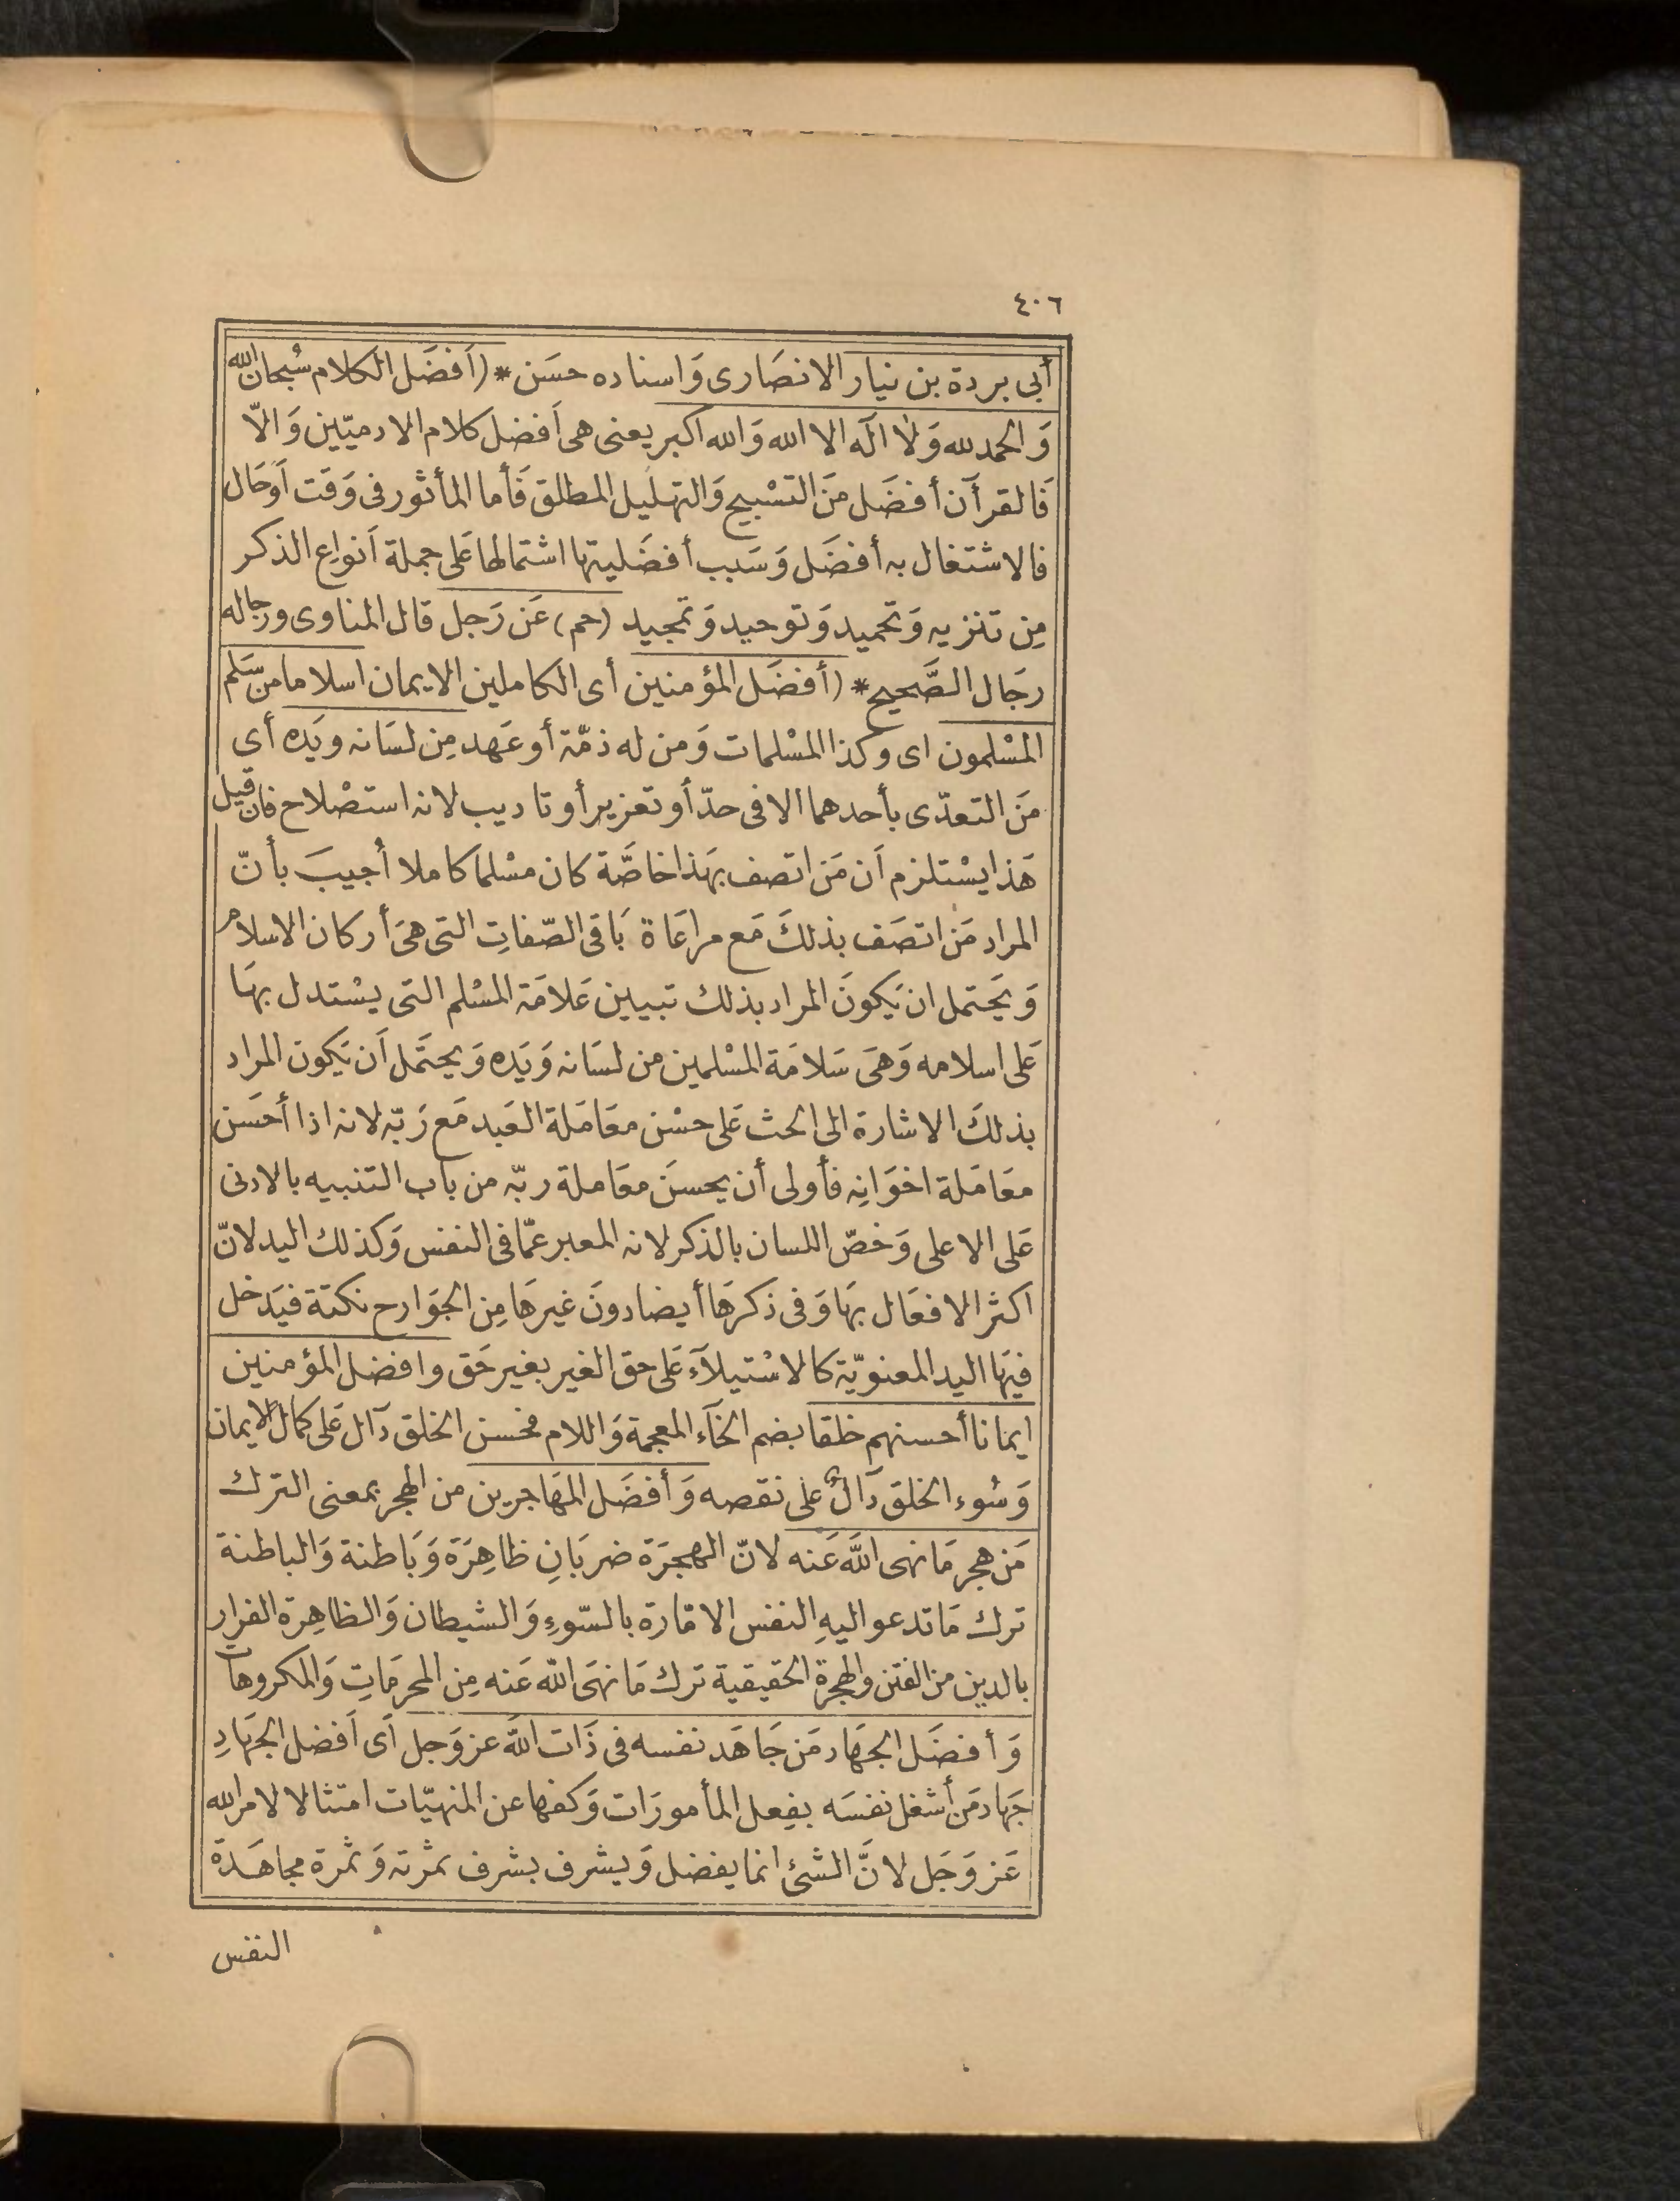 ٤٠٦
أبى بردة بن نيار الانصَارى وَاسناده حسَن * (اَفضَل الكلام سُبحان الله
وَالحمد لله وَلا اله الا الله وَالله اكبر يعنى هى اَفضل كلام الادميّين وَالّا
فَالقرأن أفضَل مَن التسْبيح وَالتهليل المطلق فَأما المأثور فى وَقت اَوحَال
فالاشتغال به أفضَل وَسَبب أفضَليتها اشتمالها عَلى جملة اَنواع الذكر
مِن تنزيه وَتحميد وَتوحيد وَتمجيد (حم) عَن رَجل قال المناوى ورجاله
رجَال الصَّحيح * (أفضَل المؤمنين أى الكاملين الايمان اسلاما من سَلم
المسْلمون اى وكذا المسْلمات وَمن له ذمّة أو عَهد مِن لسَانه ويَده أى
مَن التعدّى بأحدهما الا فى حدّ أو تعزير أو تاديب لانه استصْلاح فان قيل
هَذا يسْتلزم اَن مَن اتصف بهَذا خاصَّة كان مسْلما كاملا اُجيبَ بأنّ
المراد مَن اتصَف بذلكَ مَع مراعَاة بَاقى الصّفاتِ التى هىَ أركان الاسلام
وَيَحتمل ان يَكونَ المراد بذلك تبيين عَلامَة المسْلم التى يسْتدل بهَا
عَلى اسلامه وَهىَ سَلامَة المسْلمين من لسَانه وَيَده وَيحتَمل اَن يَكون المراد
بذلكَ الاشارة الى الحث عَلى حسْن معَامَلة العَبد مَع رَبّه لانه اذا أحسَن
معَامَلة اخوَانِه فأولى أن يحسنَ معَاملة ربّه من باب التنبيه بالادنى
عَلى الاعلى وَخصّ اللسان بالذكر لانه المعبر عمّا فى النفس وَكذلك اليد لانّ
اكثر الافعَال بهَا وَفى ذكرهَا أيضا دونَ غيرهَا مِن الجوَارح نكتة فيَدخل
فيهَا اليد المعنويّة كالاسْتيلآء عَلى حق الغير بغير حَق وافضل المؤمنين
ايمانا أحسنهم خلقا بضم الخآء المعجمة وَاللام فحسن الخلق دَآل عَلى كمال الايمان
وَسُوء الخلق دَآلٌ على نقصه وَأفضَل المهَاجرين من الهجر بمعنى الترك
مَن هجر مَا نهى اللَّه عَنه لانّ الهجرَة ضربَانِ ظاهِرَة وَبَاطنة وَالباطنة
ترك مَا تدعو اليهِ النفس الامّارة بالسّوءِ وَالشيطان وَالظاهِرة الفرار
بالدين من الفتن والهجرة الحقيقية ترك مَا نهَى اللّه عَنه مِن المحرمَاتِ وَالمكروهات
وَأفضَل الجهَاد مَن جَاهَد نفسه فى ذَات اللّه عز وَجل اَى اَفضل الجهَادِ
جهَاد مَن أشغل نفسَه بفِعل المأمورَات وَكفها عن المنهيّات امتثالا لامر الله
عَز وَجَل لانَّ الشئ انما يفضل وَيشرف بشرف ثمرته وَثمرة مجاهَدة
النفس